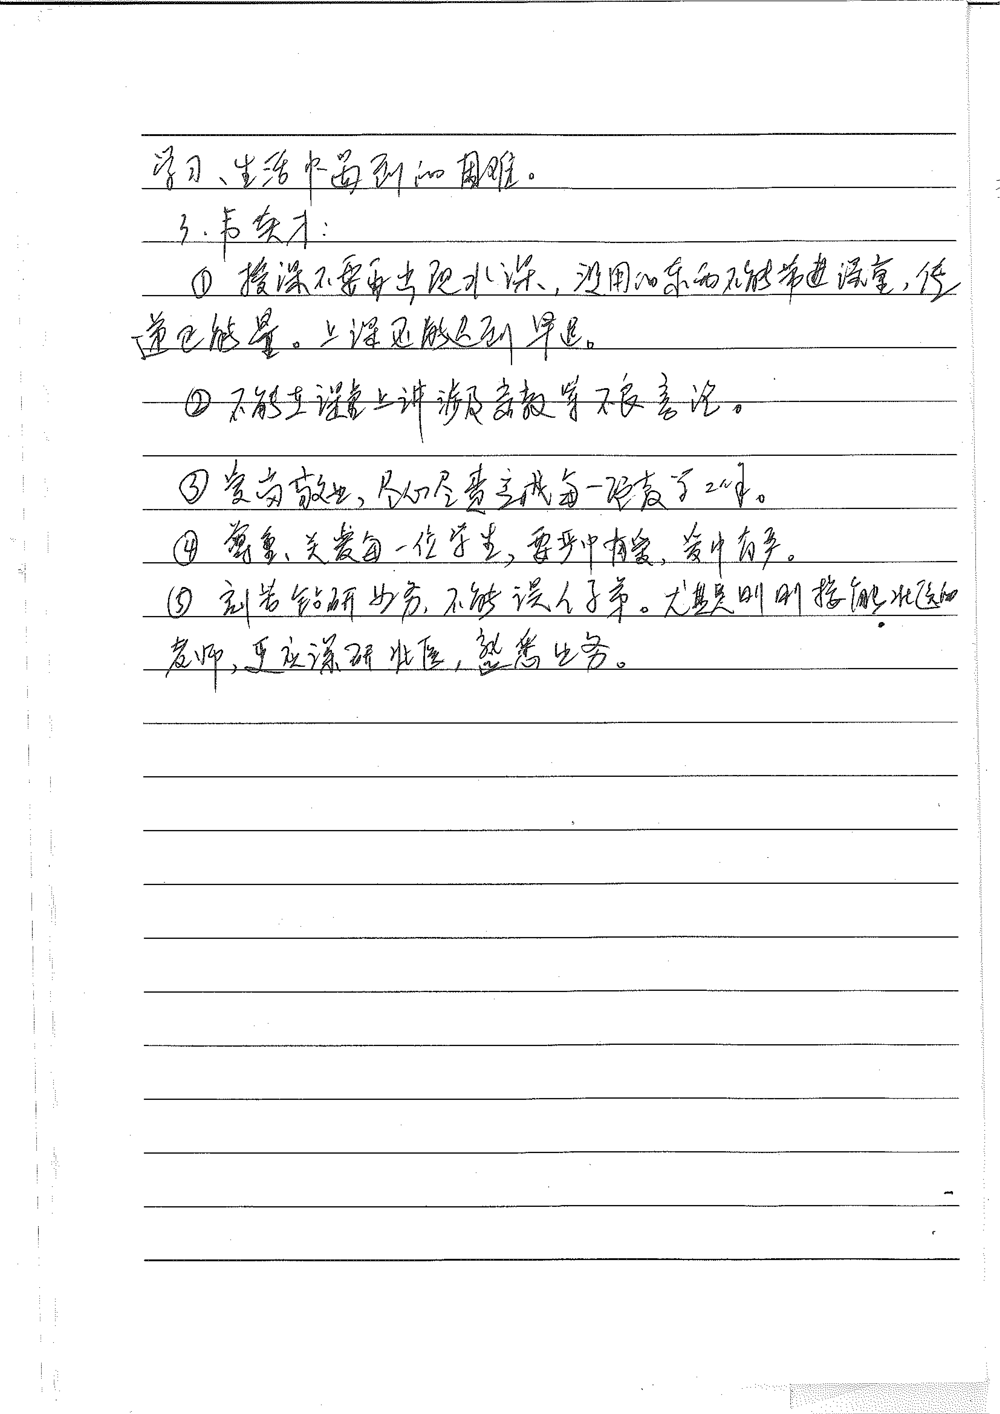 学习、生活中遇到的困难。
3.韦英才：
① 授课不要再出现水课、没用的东西不能带进课堂，传
递正能量。上课不能迟到早退。
② 不能在课堂上讲涉及宗教等不良言论。
③ 爱岗敬业，尽心尽责完成每一项教学工作。
④ 尊重、关爱每一位学生，要严中有爱，爱中有严。
⑤ 刻苦钻研业务，不能误人子弟。尤其是刚刚接触壮医的
老师，更应深研壮医，熟悉业务。